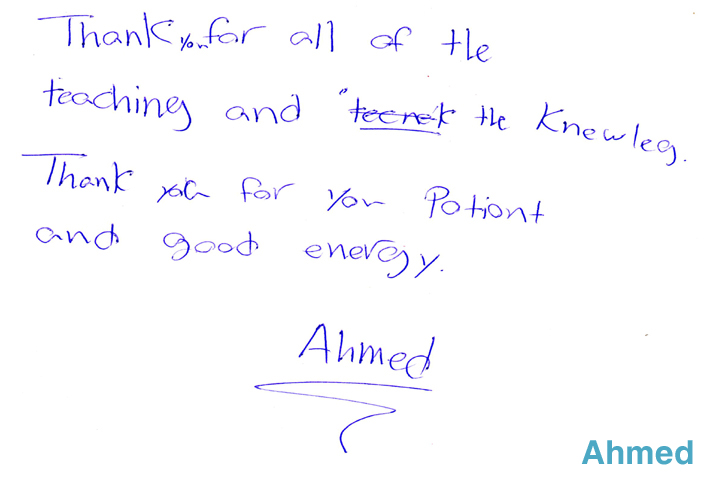 Thank you for all of the
teaching and "tecnek the Knewleg.
Thank you for you Potiont
and good energy.
Ahmed
Ahmed